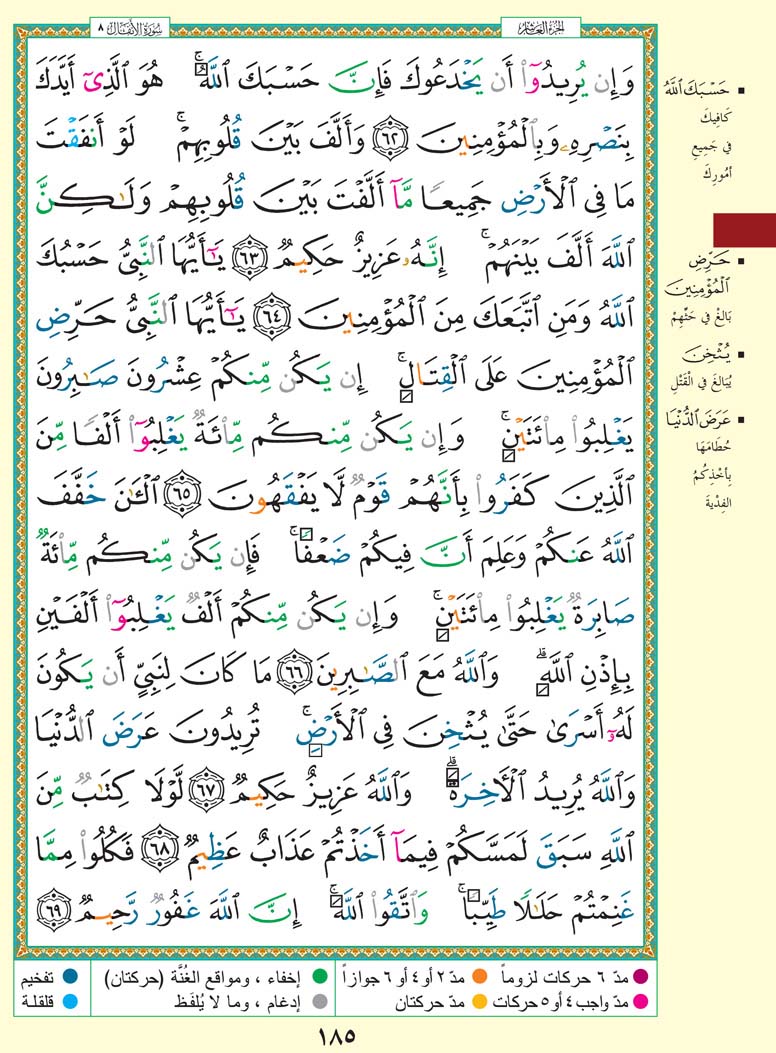 سُورَةُ الأَنْفَال ٨
الجُزءُ العَاشِرُ
وَإِن يُرِيدُوٓا۟ أَن يَخْدَعُوكَ فَإِنَّ حَسْبَكَ ٱللَّهُ ۚ هُوَ ٱلَّذِىٓ أَيَّدَكَ
بِنَصْرِهِۦ وَبِٱلْمُؤْمِنِينَ ٦٢ وَأَلَّفَ بَيْنَ قُلُوبِهِمْ ۚ لَوْ أَنفَقْتَ
مَا فِى ٱلْأَرْضِ جَمِيعًا مَّآ أَلَّفْتَ بَيْنَ قُلُوبِهِمْ وَلَـٰكِنَّ
ٱللَّهَ أَلَّفَ بَيْنَهُمْ ۚ إِنَّهُۥ عَزِيزٌ حَكِيمٌ ٦٣ يَـٰٓأَيُّهَا ٱلنَّبِىُّ حَسْبُكَ
ٱللَّهُ وَمَنِ ٱتَّبَعَكَ مِنَ ٱلْمُؤْمِنِينَ ٦٤ يَـٰٓأَيُّهَا ٱلنَّبِىُّ حَرِّضِ
ٱلْمُؤْمِنِينَ عَلَى ٱلْقِتَالِ ۚ إِن يَكُن مِّنكُمْ عِشْرُونَ صَـٰبِرُونَ
يَغْلِبُوا۟ مِا۟ئَتَيْنِ ۚ وَإِن يَكُن مِّنكُم مِّا۟ئَةٌ يَغْلِبُوٓا۟ أَلْفًا مِّنَ
ٱلَّذِينَ كَفَرُوا۟ بِأَنَّهُمْ قَوْمٌ لَّا يَفْقَهُونَ ٦٥ ٱلْـَٔـٰنَ خَفَّفَ
ٱللَّهُ عَنكُمْ وَعَلِمَ أَنَّ فِيكُمْ ضَعْفًا ۚ فَإِن يَكُن مِّنكُم مِّا۟ئَةٌ
صَابِرَةٌ يَغْلِبُوا۟ مِا۟ئَتَيْنِ ۚ وَإِن يَكُن مِّنكُمْ أَلْفٌ يَغْلِبُوٓا۟ أَلْفَيْنِ
بِإِذْنِ ٱللَّهِ ۗ وَٱللَّهُ مَعَ ٱلصَّـٰبِرِينَ ٦٦ مَا كَانَ لِنَبِىٍّ أَن يَكُونَ
لَهُۥٓ أَسْرَىٰ حَتَّىٰ يُثْخِنَ فِى ٱلْأَرْضِ ۚ تُرِيدُونَ عَرَضَ ٱلدُّنْيَا
وَٱللَّهُ يُرِيدُ ٱلْـَٔاخِرَةَ ۗ وَٱللَّهُ عَزِيزٌ حَكِيمٌ ٦٧ لَّوْلَا كِتَـٰبٌ مِّنَ
ٱللَّهِ سَبَقَ لَمَسَّكُمْ فِيمَآ أَخَذْتُمْ عَذَابٌ عَظِيمٌ ٦٨ فَكُلُوا۟ مِمَّا
غَنِمْتُمْ حَلَـٰلًا طَيِّبًا ۚ وَٱتَّقُوا۟ ٱللَّهَ ۚ إِنَّ ٱللَّهَ غَفُورٌ رَّحِيمٌ ٦٩
▪ حَسْبَكَ ٱللَّهُ
كَافِيكَ
فِي جَمِيعِ
أُمُورِكَ
▪ حَرِّضِ
ٱلْمُؤْمِنِينَ
بَالِغْ فِي حَثِّهِمْ
▪ يُثْخِنَ
يُبَالِغَ فِي الْقَتْلِ
▪ عَرَضَ ٱلدُّنْيَا
حُطَامَهَا
بِأَخْذِكُمُ
الفِدْيَةَ
● مدّ ٦ حركات لزوماً ● مدّ ٢ أو ٤ أو ٦ جوازاً ● إخفاء ، ومواقع الغُنَّة (حركتان) ● تفخيم
● مدّ واجب ٤ أو ٥ حركات ● مدّ حركتان ● إدغام ، وما لا يُلفَظ ● قلقلة
١٨٥